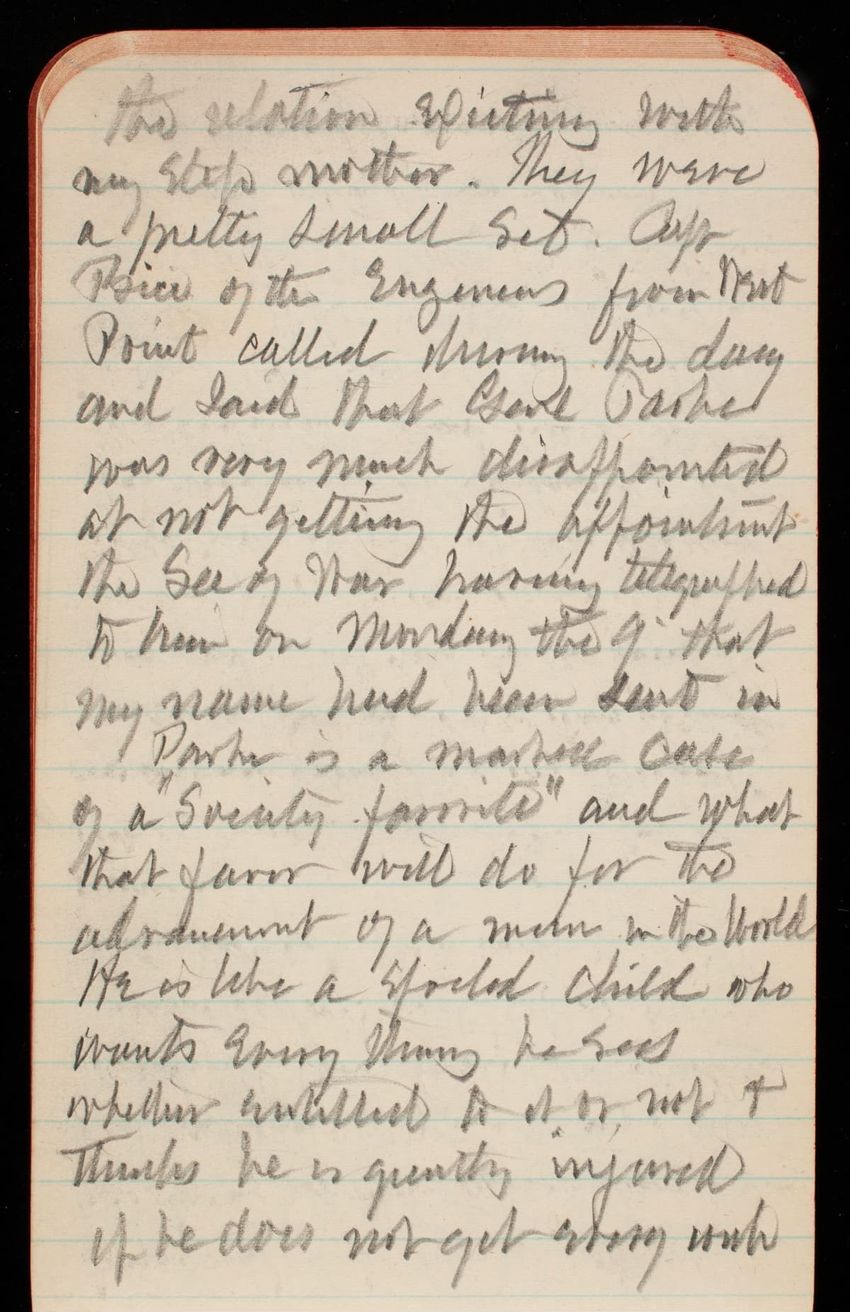 the relation Existing with
my Step mother. They were
a pretty small set. Capt
Price of the Engineers from West
Point called during the day
and said that Genl Parke
was very much disappointed
at not getting the appointment
the Sec of War having telegraphed
to him on Monday the 9" that
my name had been sent in
Parke is a marked case
of a "Society favorite" and what
that favor will do for the
advancement of a man in the World
He is like a spoiled child who
wants Every thing he sees
whether entitled to it or not &
thinks he is greatly injured
if he does not get every